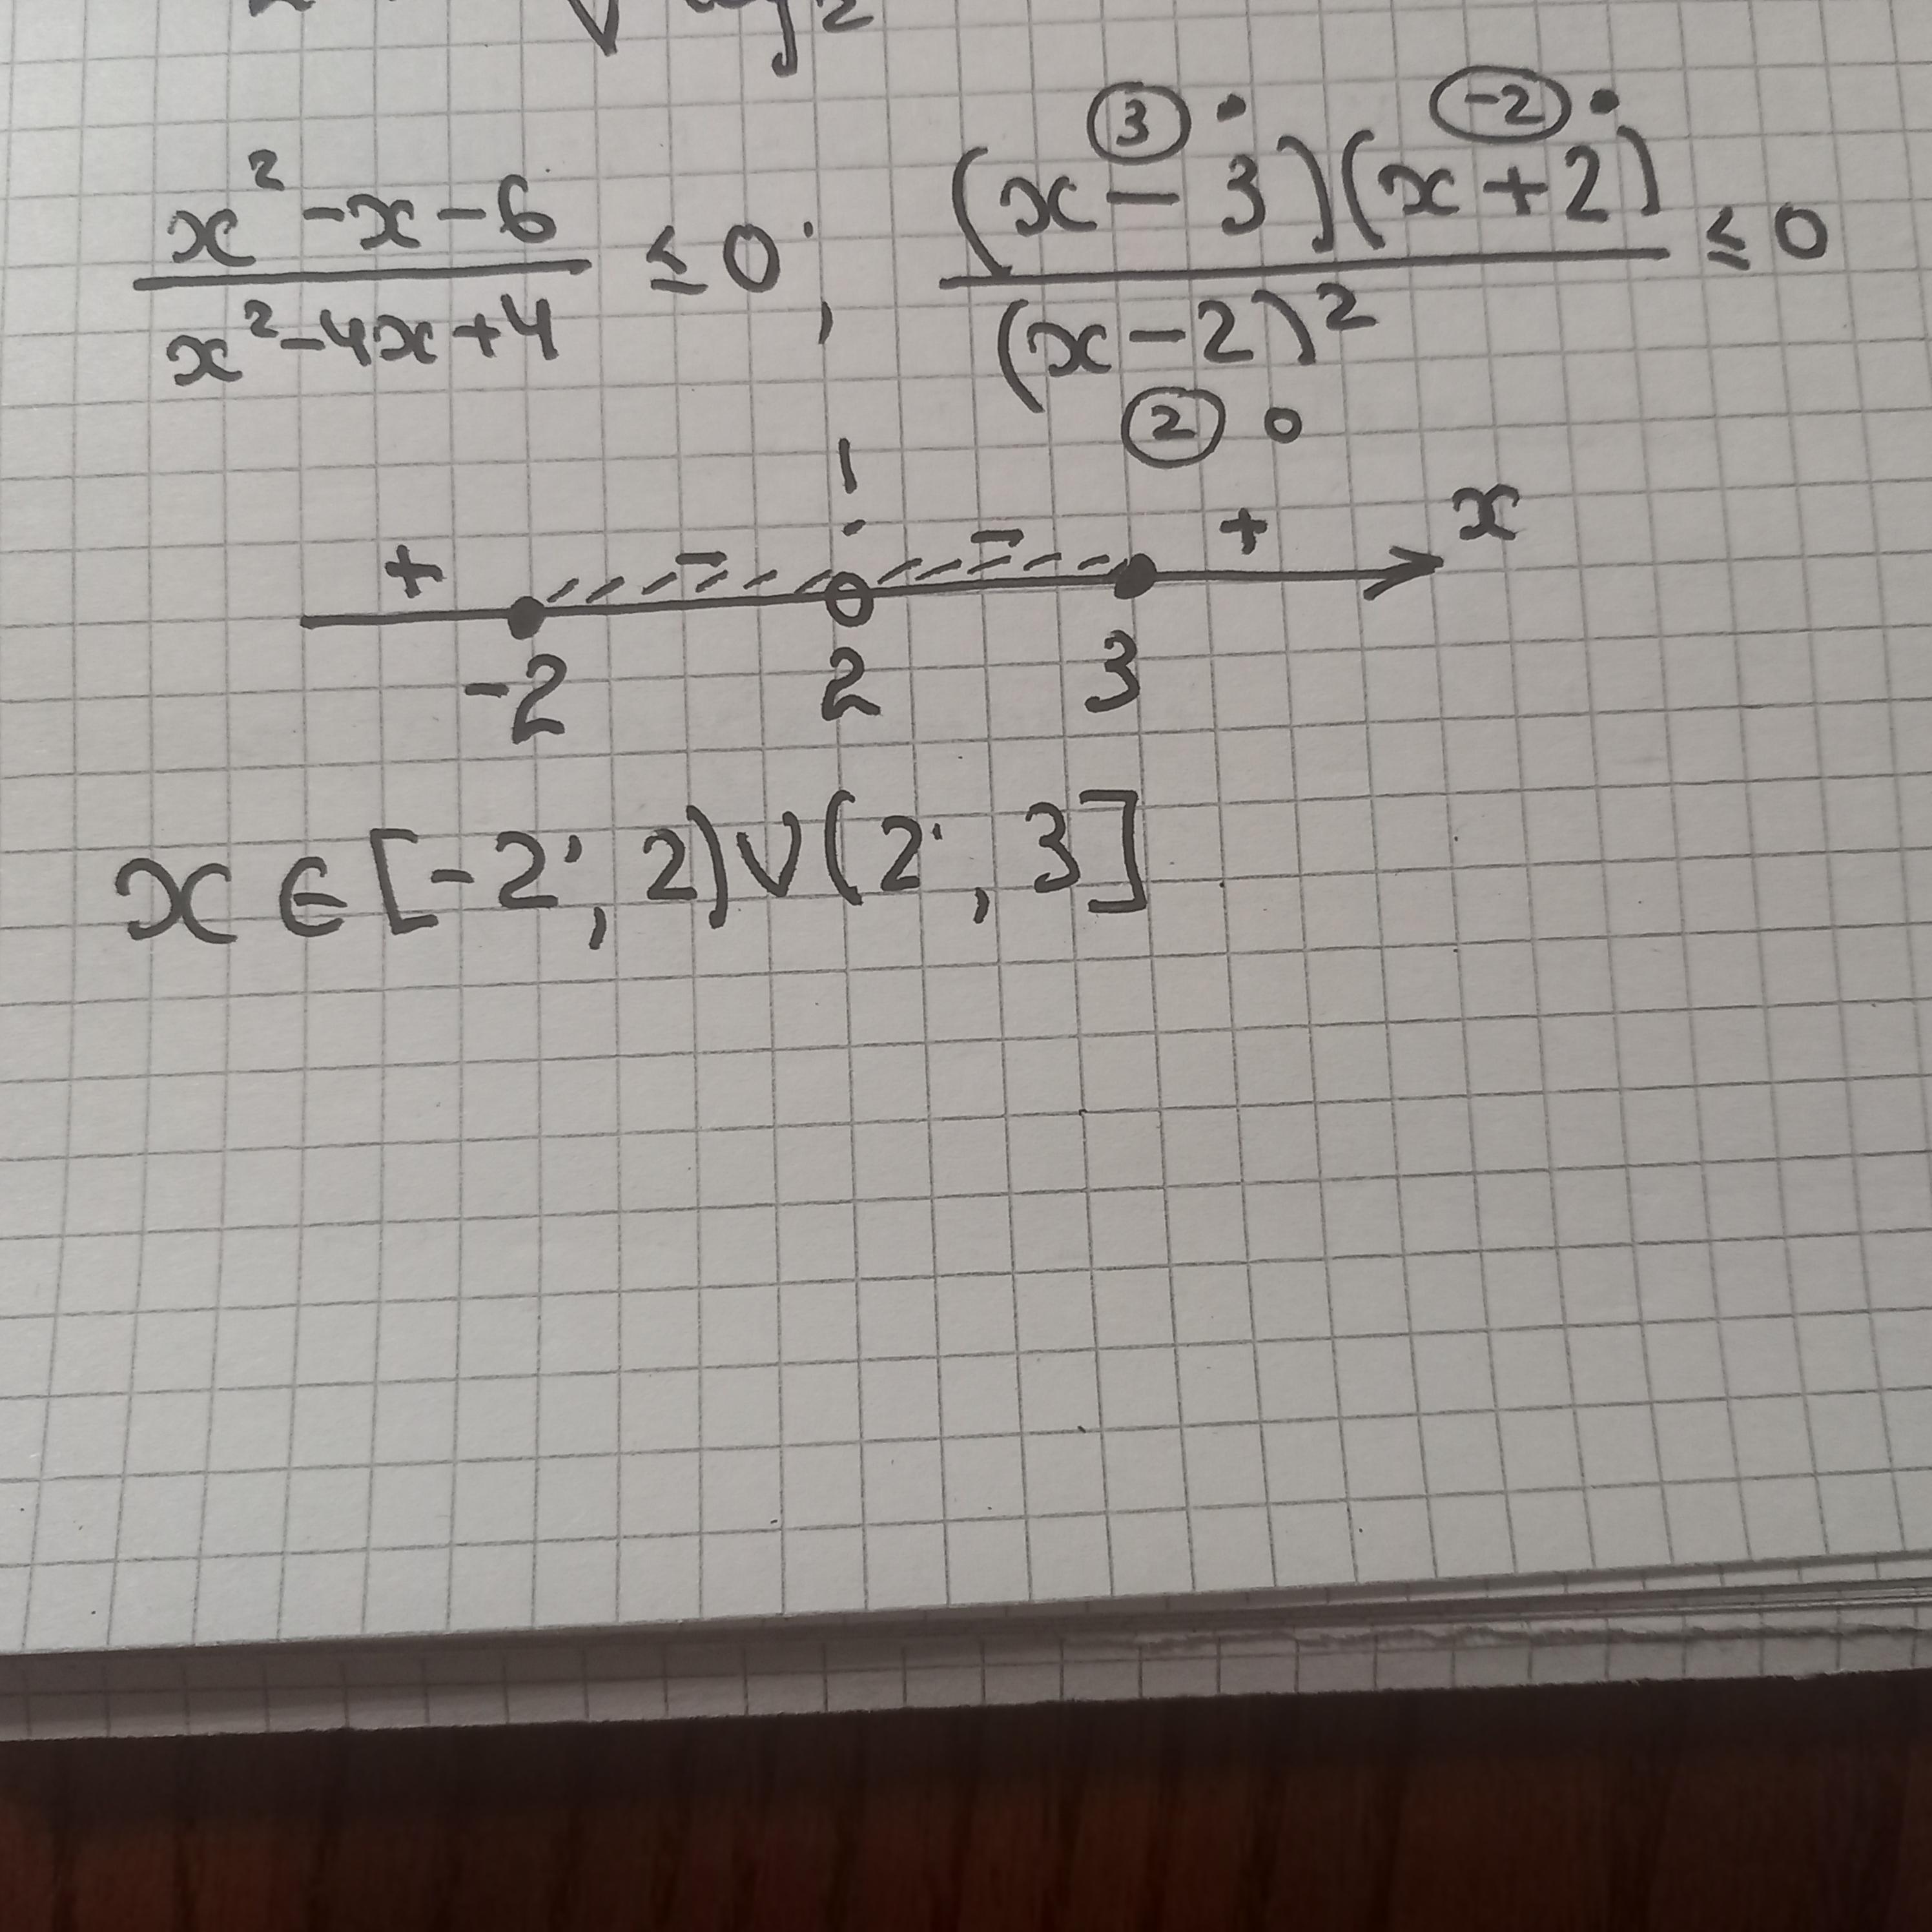 x² - x - 6 / x² - 4x + 4 ≤ 0; (x - 3)(x + 2) / (x - 2)² ≤ 0
3 -2
2
!
+ - - + x
-2 2 3
x ∈ [-2; 2) ∪ (2; 3]